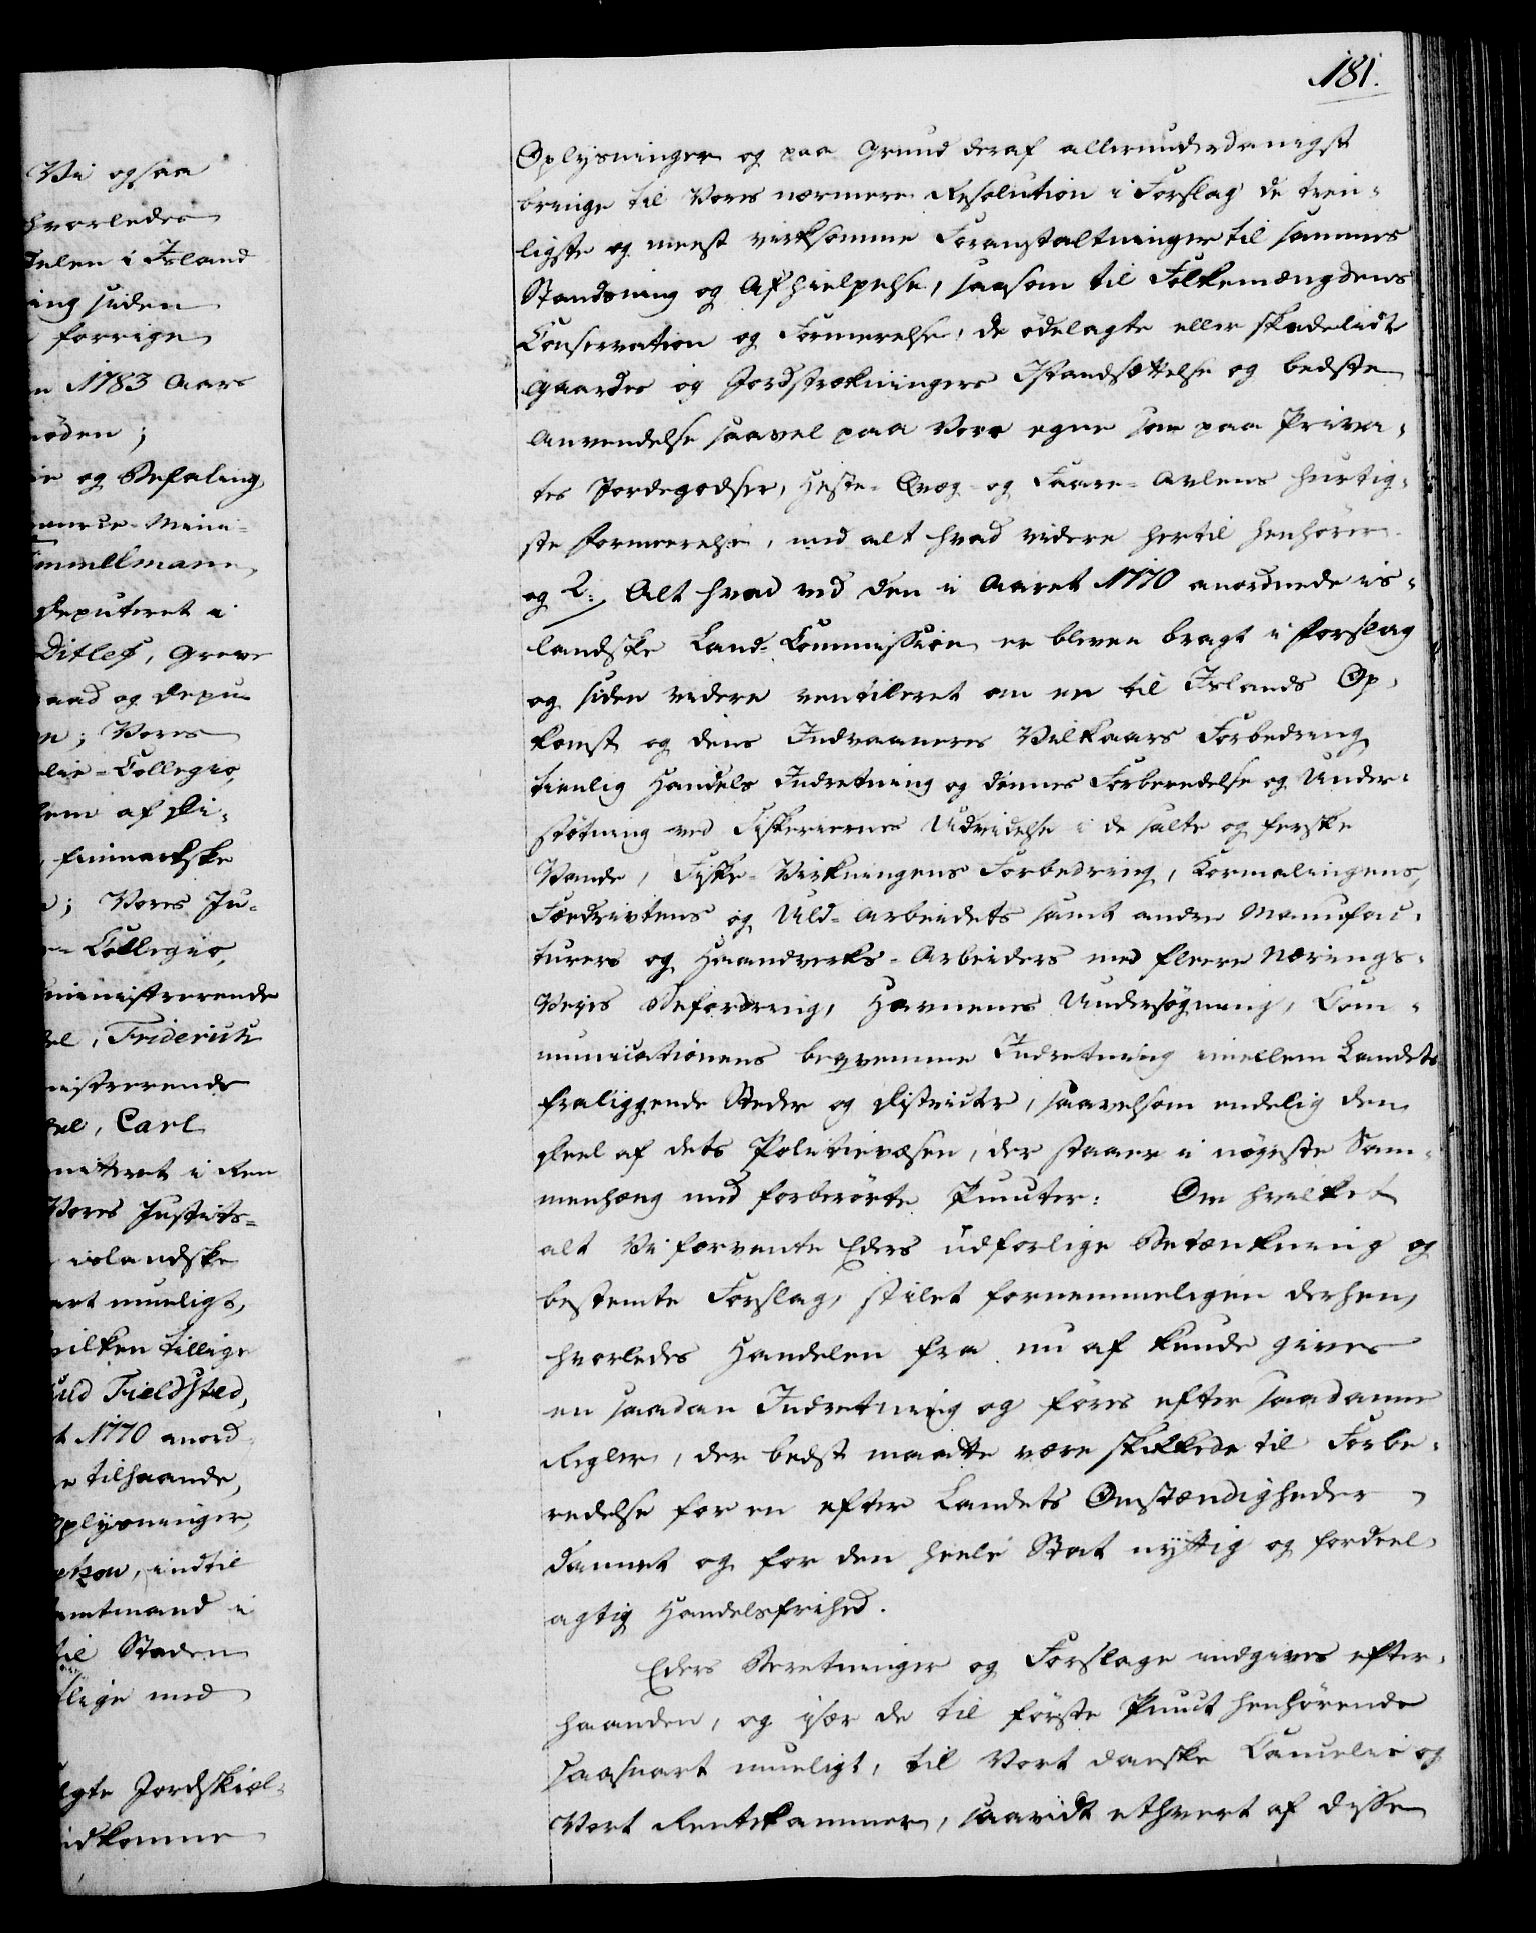 181.
Vi ogsaa
hvorledes
delen i Island
ing siden
forrige
1783 Aars
nöden;
og Befaling
mmelmann,
Deputeret i
Ditlef, Greve
raad og Depu-
Vores
lie-Collegio,
lem af Di-
finmarkske
; Vores Ju-
Collegio,
ministrerende
del, Friderich
nistrerende
del, Carl
mitteret i Ren
Vores Justits-
islandske
art mueligt,
hvilken tillige
Fieldsted,
1770 anord-
tilhaande,
Oplysninger,
etzow, indtil
amtmand i
til Staden
lige med
lgte Jordskiæl-
idkomne
Oplysninger og paa Grund deraf allerunderdanigst
bringe til Vores nærmere Resolution i Forslag de tien-
ligste og meest virksomme Foranstaltninger til sammes
Standsning og Afhielpelse, saasom til Folkemængdens
Conservation og Formerelse, de ödelagte eller skadelidte
Gaardes og Jordstrækningers Istandsættelse og bedste
Anvendelse saavel paa Vore egne som paa Priva-
tes Jordegodser, Heste- Qvæg- og Faare-Avlens hurtig-
ste Formeerelse, med alt hvad videre hertil henhörer.
og 2: Alt hvad ved den i Aaret 1770 anordnede is-
landske Land-Commission er bleven bragt i Forslag
og siden videre ventileret om en til Islands Op-
komst og dens Indvaaneres Vilkaars Forbedring
tienlig Handels Indretning og dennes Forberedelse og Under-
stötning ved Fiskeriernes Udvidelse i de salte og ferske
Vande, Fiske-Virkningens Forbedring, Kornavlingens,
Fædriftens og Uld-Arbeidets samt andre Manufac-
turers og Haandverks-Arbeiders med fleere Nærings-
Veyes Befordring, Havnenes Undersögning, Com-
municationens beqvemme Indretning imellem Landets
fraliggende Steder og Districter, saavelsom endelig den
Deel af dets Politievæsen, der staaer i nöyeste Sam-
menhæng med forberörte Puncter: Om hvilket
alt Vi forvente Eders udforlige Betænkning og
bestemte Forslag, stilet fornemmeligen derhen,
hvorledes Handelen fra nu af kunde gives
en saadan Indretning og föres efter saadanne
Regler, der bedst maatte være skikkede til Forbe-
redelse for en efter Landets Omstændigheder
dannet og for den heele Stat nyttig og fordeel-
agtig Handelsfrihed.
Eders Beretninger og Forslage indgives efter-
haanden, og især de til förste Punct henhörende
saasnart mueligt, til Vort danske Cancelie og
Vort Rentekammer, saavidt ethvert af disse